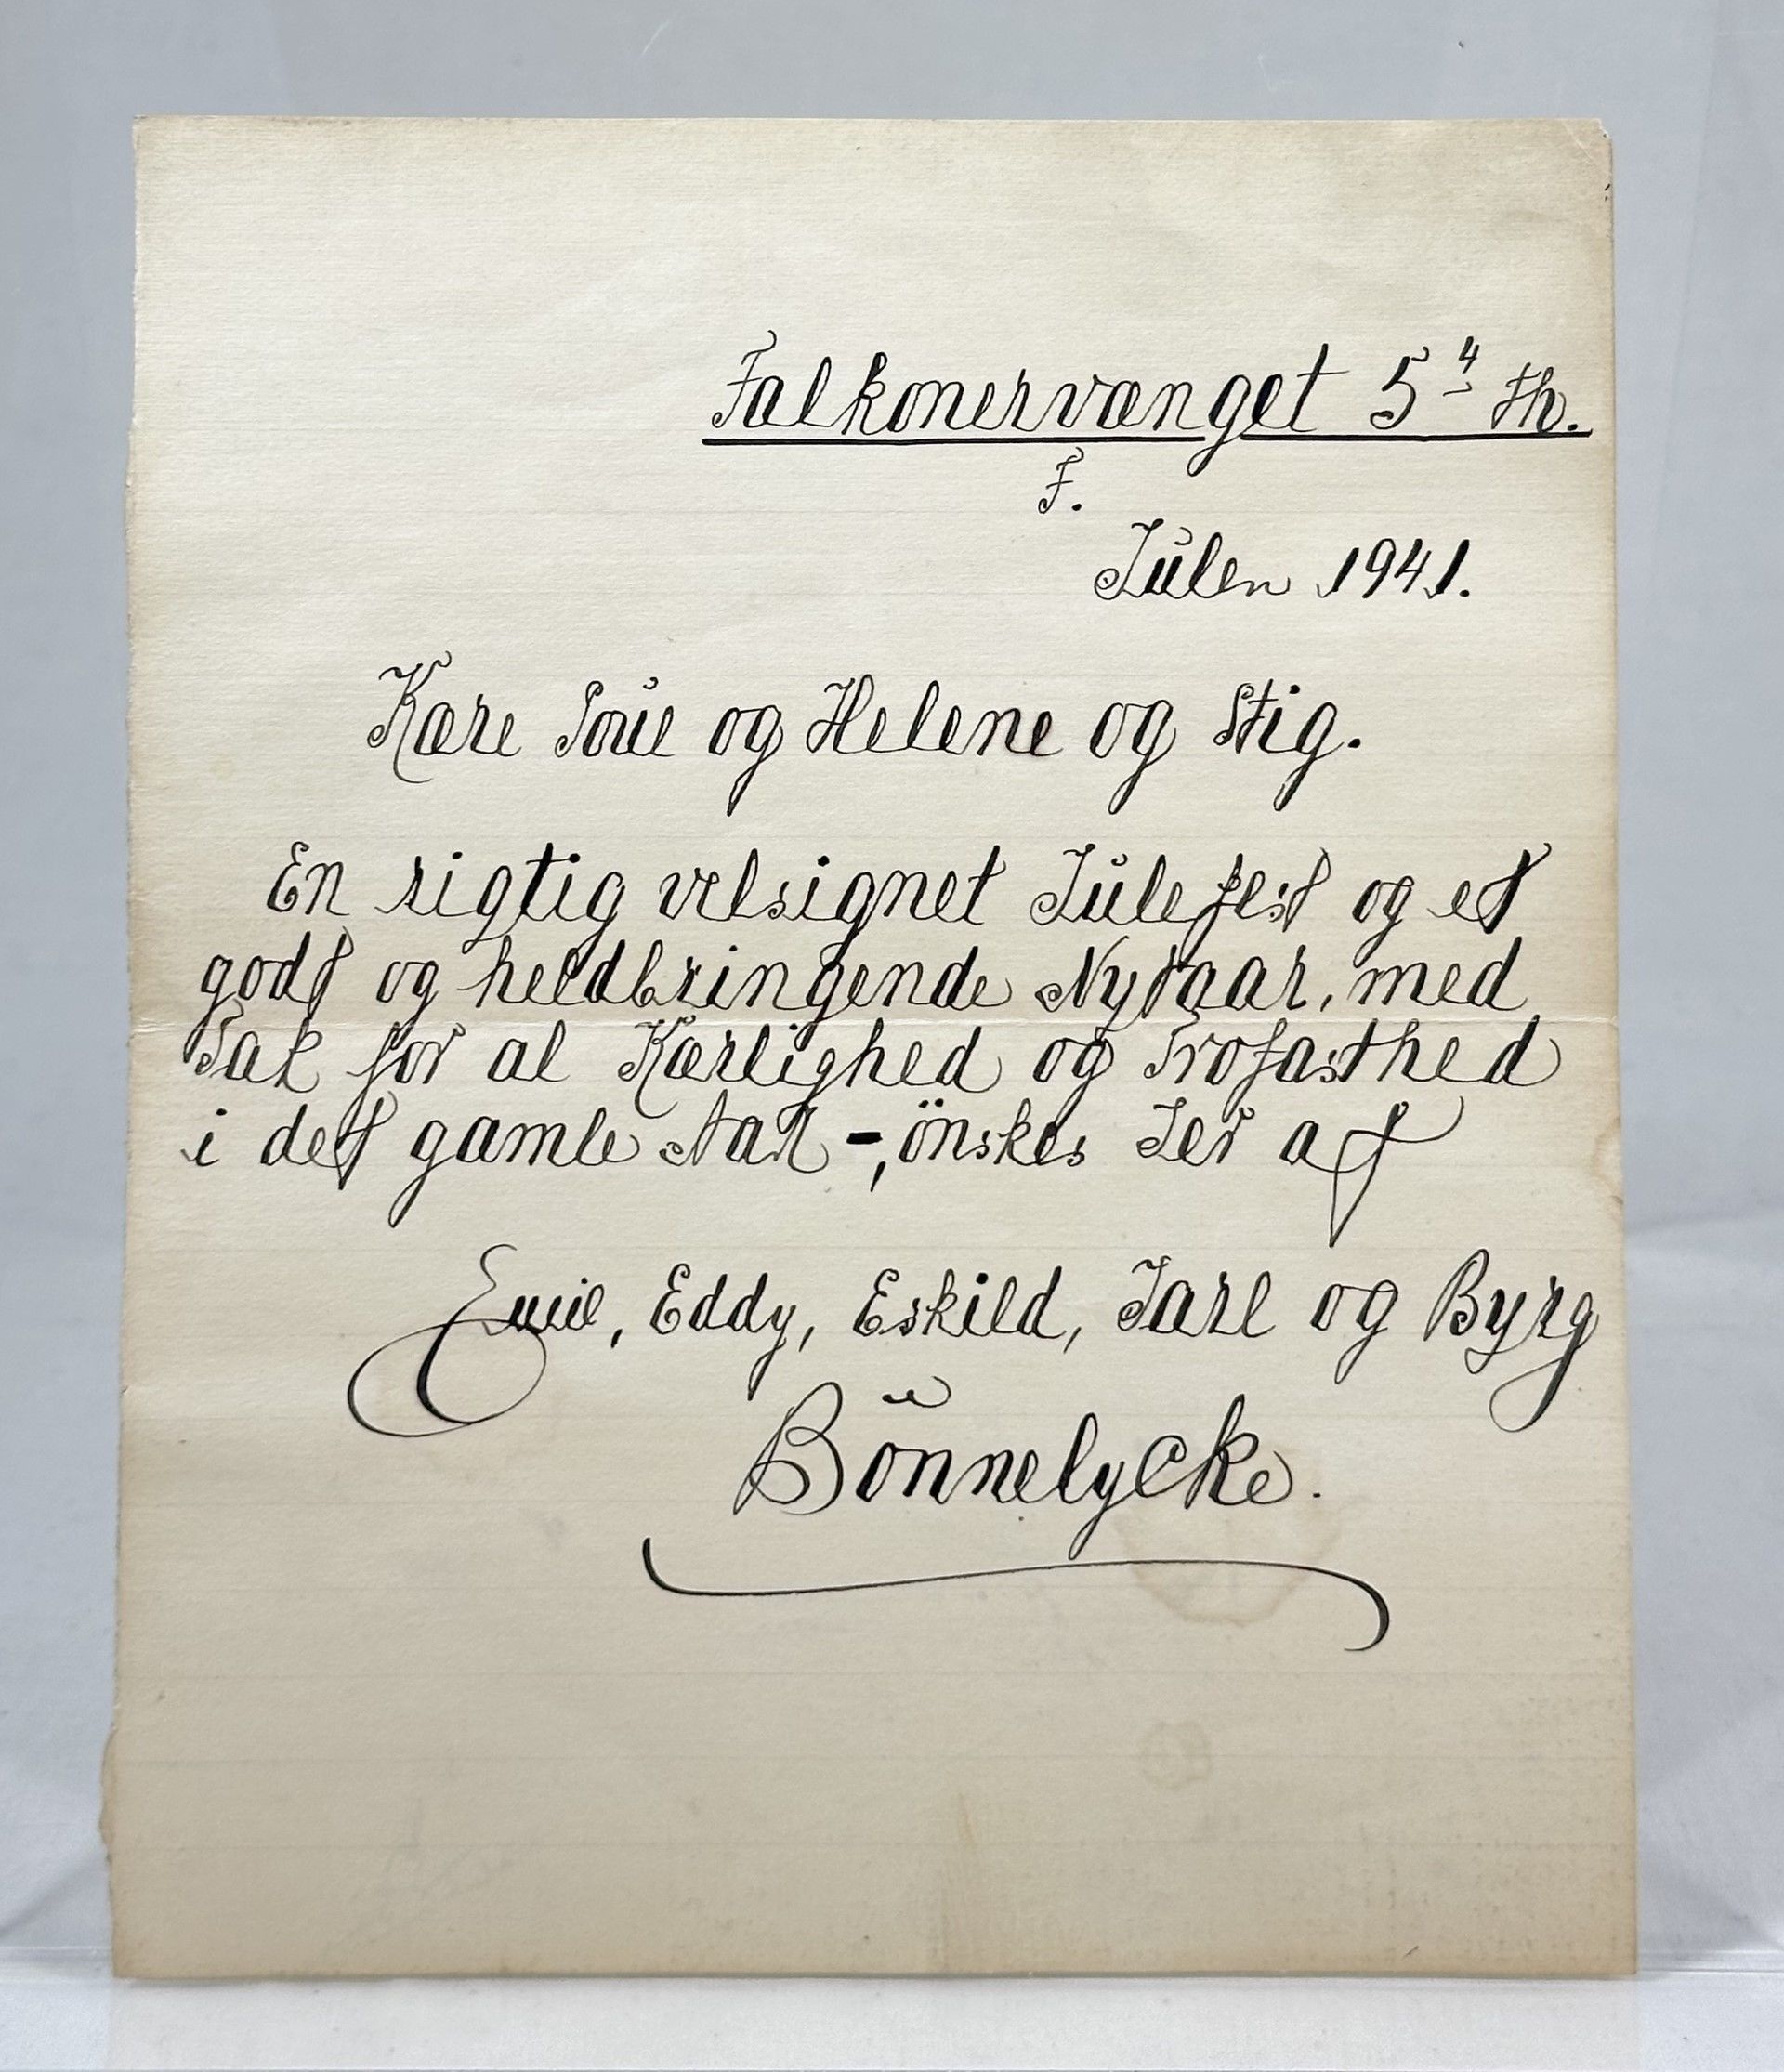 Falkonervænget 5 4 th.
F.
Julen 1941.
Kære og Helene og Stig.
En rigtig velsignet Julefest og et
godt og heldbringende Nytaar, med
Tak for al Kærlighed og Trofasthed
i det gamle Aar -, önskes Jer af
Emil, Eddy, Eskild, Jarl og Byrg
Bönnelycke.